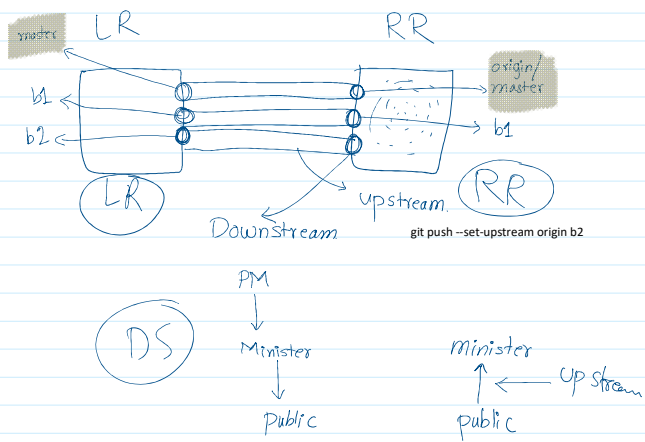 LR
RR
master
origin/
master
b1
b1
b2
LR
RR
Upstream.
Downstream
git push --set-upstream origin b2
PM
DS
Minister
Minister
Up Stream
Public
Public